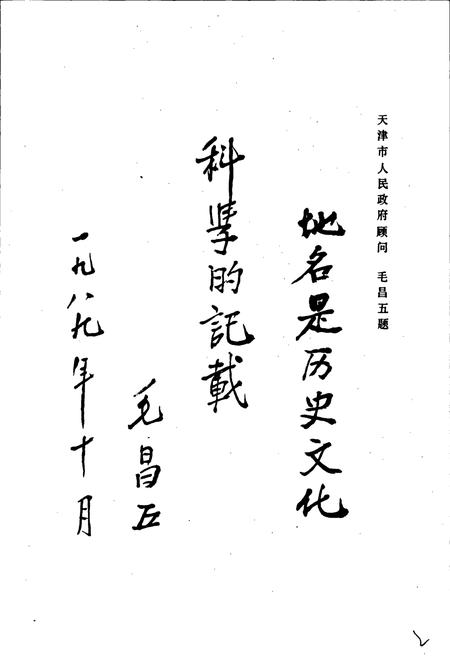 天津市人民政府顾问　毛昌五题
地名是历史文化
科学的記載
毛昌五
一九八九年十月